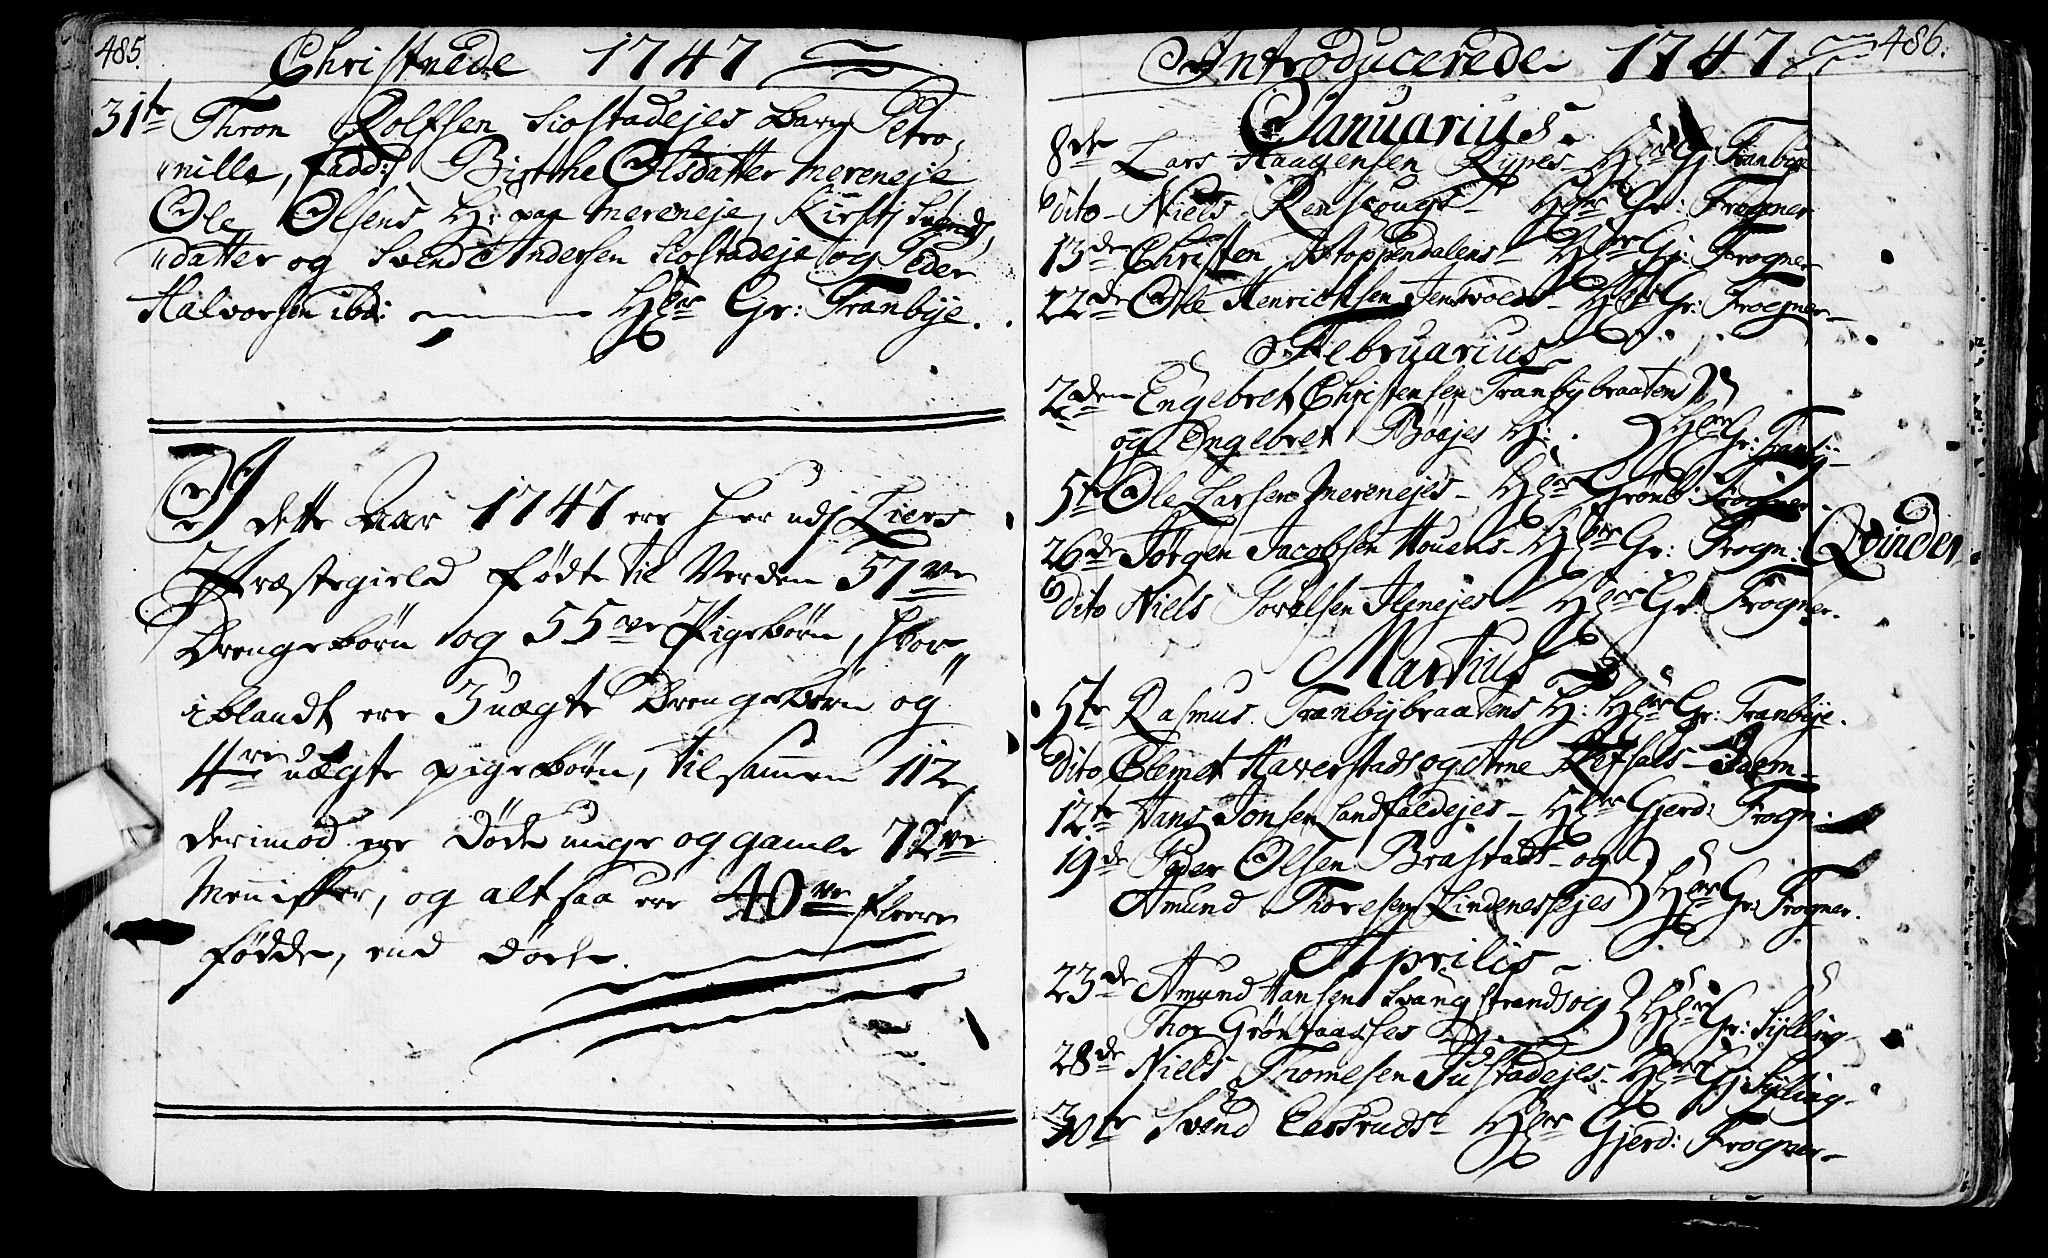 485.
Christnede 1747
31te Thron Rolfsen Siostadejes barn Petro„
„nille, fadd: Birthe Olsdatter Mereneje,
Ole Olsens H: paa Mereneje, Kirsti Svends„
„datter og Svend Andersen Siostadeje og Peder
Halvorsen ibd: Hr Gr: Tranbÿe.
I dette Aar 1747 ere her udj Liers
Præstegield fødte til Verden 57ve
Drengebørn og 55ve Pigebørn, hvor„
iblandt ere 3 uægte Drengebørn og
4re uægte pigebørn, tilsamen 112,
derimod ere døde unge og gamle 72ve
Menisker, og altsaa ere 40ve fleere
fødde, end døde.
Introducerede 1747 486.
Januarius
8de Lars Haagensen Rÿpes Hr G: Tranbÿe
dito Niels Renskougs Hr Gr: Frogner
13de Christen Stoppendalens Hr G: Frogner
22de Ole Henrichsen Jensvolds Hr Gr: Frogner
Februarius
2den Engebret Christensen Tranbybraaten
og Engebret Bøejes H: Hr Gr: Tranbÿ
5te Ole Larsen Merenejes Hr Grønb: Frogner
26de Jørgen Jacobsen Houens Hr Gr: Frogn:
Qvinder
dito Niels Povelsen Ilenejes Hr Gr: Frogner.
Martius
5te Rasmus Tranbybraatens H: Hr Gr: Tranbÿe.
dito Clemet Haverstads og Arne Refsals Idem
12te Hans Jonsen Landfaldejes Hr Gjerd: Frogn:
19de Peder Olsen Brastads og
Amund Thoresen Lindenessejes Hr Gr: Frogner.
Aprilis
23de Amund Hansen Svangstrands og Hr Gr: Sÿlling
Thor Grønsaasses
28de Niels Thomesen Justadejes Hr G: Sÿlling
30te Svend Eeskruds Hr Gjerd: Frogner